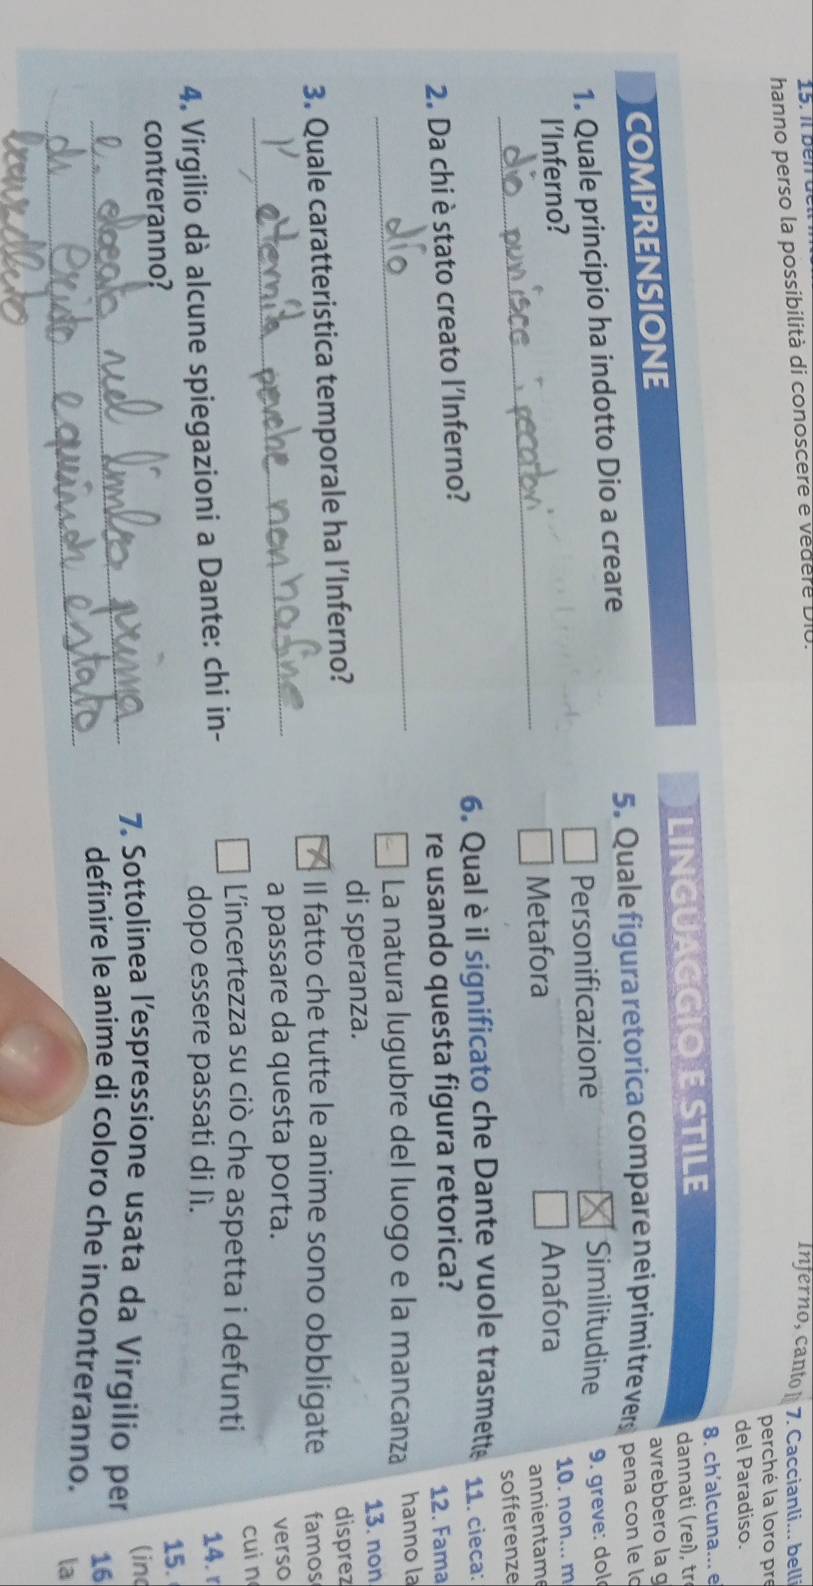 15. Il ben
hanno perso la possibilità di conoscere e vedere Dio.
Inferno, canto
COMPRENSIONE
1. Quale principio ha indotto Dio a creare
l'Inferno?
dio punisce i peccatori
2. Da chi è stato creato l'Inferno?
dio
3. Quale caratteristica temporale ha l'Inferno?
l' eternità perche non ha fine
4. Virgilio dà alcune spiegazioni a Dante: chi in-
contreranno?
nel limbo prima
di e quindi
LINGUAGGIO E STILE
5. Quale figura retorica compare nei primi tre vers
Personificazione
Similitudine
Metafora
Anafora
6. Qual è il significato che Dante vuole trasmette
re usando questa figura retorica?
La natura lugubre del luogo e la mancanza
di speranza.
Il fatto che tutte le anime sono obbligate
a passare da questa porta.
L'incertezza su ciò che aspetta i defunti
dopo essere passati di lì.
7. Sottolinea l'espressione usata da Virgilio per
definire le anime di coloro che incontreranno.
7. Caccianli... belli
perché la loro pre
del Paradiso.
8. ch'alcuna... e
dannati (rei), tr
avrebbero la g
pena con le lo
9. greve: dolo
10. non... m
annientame
sofferenze
11. cieca:
12. Fama
hanno la
13. non
disprez
famos
verso
cui n
14. r
15.
(in
16
la